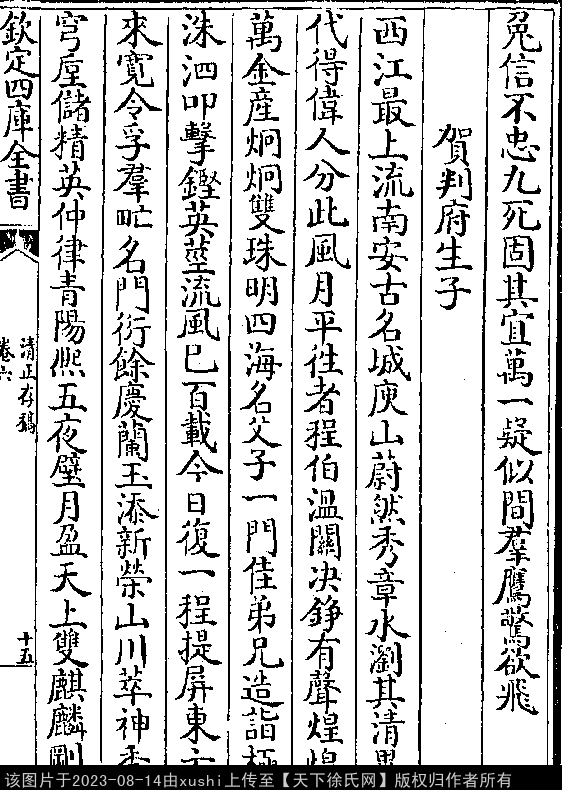 兔信不忠九死固其宜萬一疑似間羣鷹驚欲飛
賀判府生子
西江最上流南安古名城庾山蔚然秀章水瀏其清異
代得偉人分此風月平徃者程伯溫關决錚有聲煌煌
萬金産炯炯雙珠明四海名父子一門佳弟兄造詣極
洙泗叩擊鏗英莖流風已百載今日復一程提屏東方
來寛令孚羣甿名門衍餘慶蘭玉添新榮山川萃神秀
穹壐儲精英仲律青陽熈五夜璧月盈天上雙麒麟剛
欽定四庫全書
清正存稿
卷六
十五
该图片于2023-08-14由xushi上传至【天下徐氏网】版权归作者所有